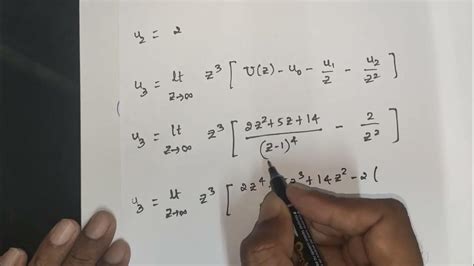 u₂ = 2
u₃ = lt z→∞ z³ [ U(z) - u₀ - u₁/z - u₂/z² ]
u₃ = lt z→∞ z³ [ (2z²+5z+14)/(z-1)⁴ - 2/z² ]
u₃ = lt z→∞ z³ [ 2z⁴ z³ + 14z² - 2 (